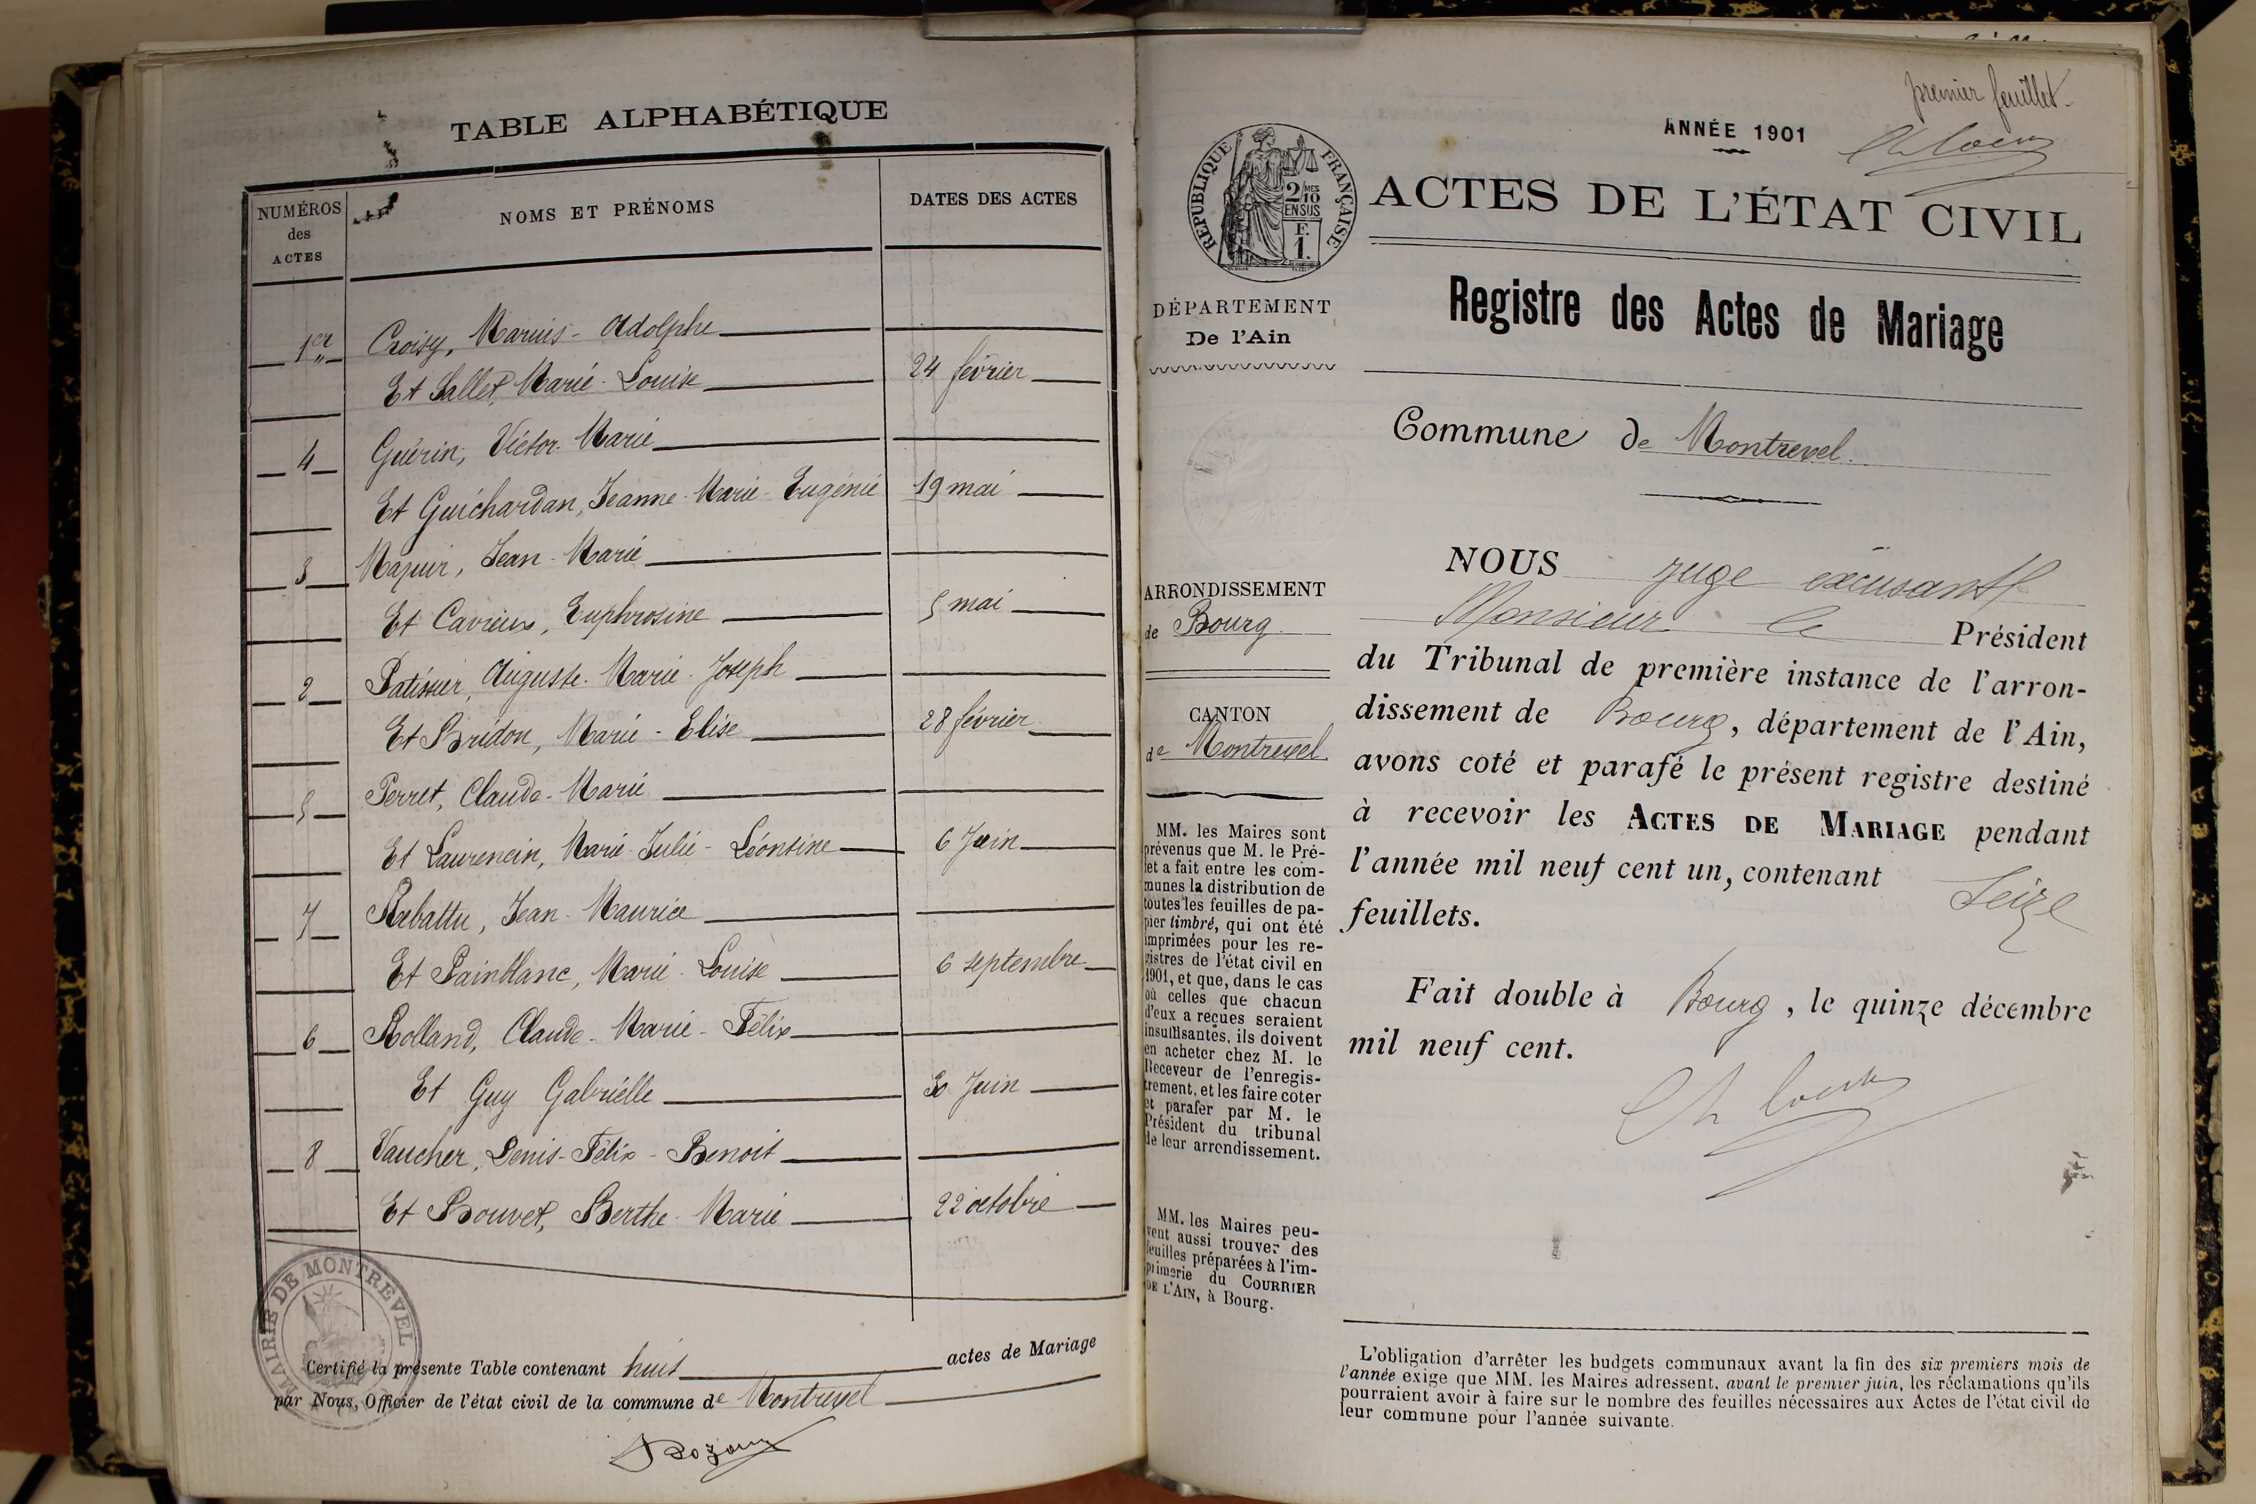 TABLE ALPHABÉTIQUE
NUMÉROS
des
ACTES
NOMS ET PRÉNOMS
DATES DES ACTES
1er Croisy, Marius - Adolphe
Et Sallet, Marie - Louise 24 février
4 Guérin, Victor - Marie
Et Guichardan, Jeanne - Marie - Eugénie 19 mai
3 Mazuir, Jean - Marie
Et Cavieux, Euphrosine 5 mai
2 Patissier, Auguste - Marie - Joseph
Et Bridon, Marie - Elise 28 février
5 Perret, Claude - Marie
Et Laurencin, Marie - Julie - Léontine 6 Juin
7 Rebattu, Jean - Maurice
Et Painblanc, Marie - Louise 6 septembre
6 Rolland, Claude - Marie - Félix
Et Guy Gabrielle 30 Juin
8 Vaucher, Denis - Félix - Benoit
Et Bouvet, Berthe - Marie 22 octobre
MAIRIE DE MONTREVEL
Certifié la présente Table contenant huit actes de Mariage
par Nous, Officier de l'état civil de la commune de Montrevel
premier feuillet
ANNÉE 1901
RÉPUBLIQUE FRANÇAISE
2/10 MES
EN SUS
F.
1.
ACTES DE L'ÉTAT CIVIL
DÉPARTEMENT
De l'Ain
Registre des Actes de Mariage
Commune de Montrevel
ARRONDISSEMENT
de Bourg
CANTON
de Montrevel
MM. les Maires sont
prévenus que M. le Pré-
fet a fait entre les com-
munes la distribution de
toutes les feuilles de pa-
pier timbré, qui ont été
imprimées pour les re-
gistres de l'état civil en
1901, et que, dans le cas
où celles que chacun
d'eux a reçues seraient
insuffisantes, ils doivent
en acheter chez M. le
Receveur de l'enregis-
trement, et les faire coter
et parafer par M. le
Président du tribunal
de leur arrondissement.
MM. les Maires peu-
vent aussi trouver des
feuilles préparées à l'im-
primerie du COURRIER
DE L'AIN, à Bourg.
NOUS juge excusant
Monsieur le Président
du Tribunal de première instance de l'arron-
dissement de Bourg, département de l'Ain,
avons coté et parafé le présent registre destiné
à recevoir les ACTES DE MARIAGE pendant
l'année mil neuf cent un, contenant Seize
feuillets.
Fait double à Bourg, le quinze décembre
mil neuf cent.
L'obligation d'arrêter les budgets communaux avant la fin des six premiers mois de
l'année exige que MM. les Maires adressent, avant le premier juin, les réclamations qu'ils
pourraient avoir à faire sur le nombre des feuilles nécessaires aux Actes de l'état civil de
leur commune pour l'année suivante.